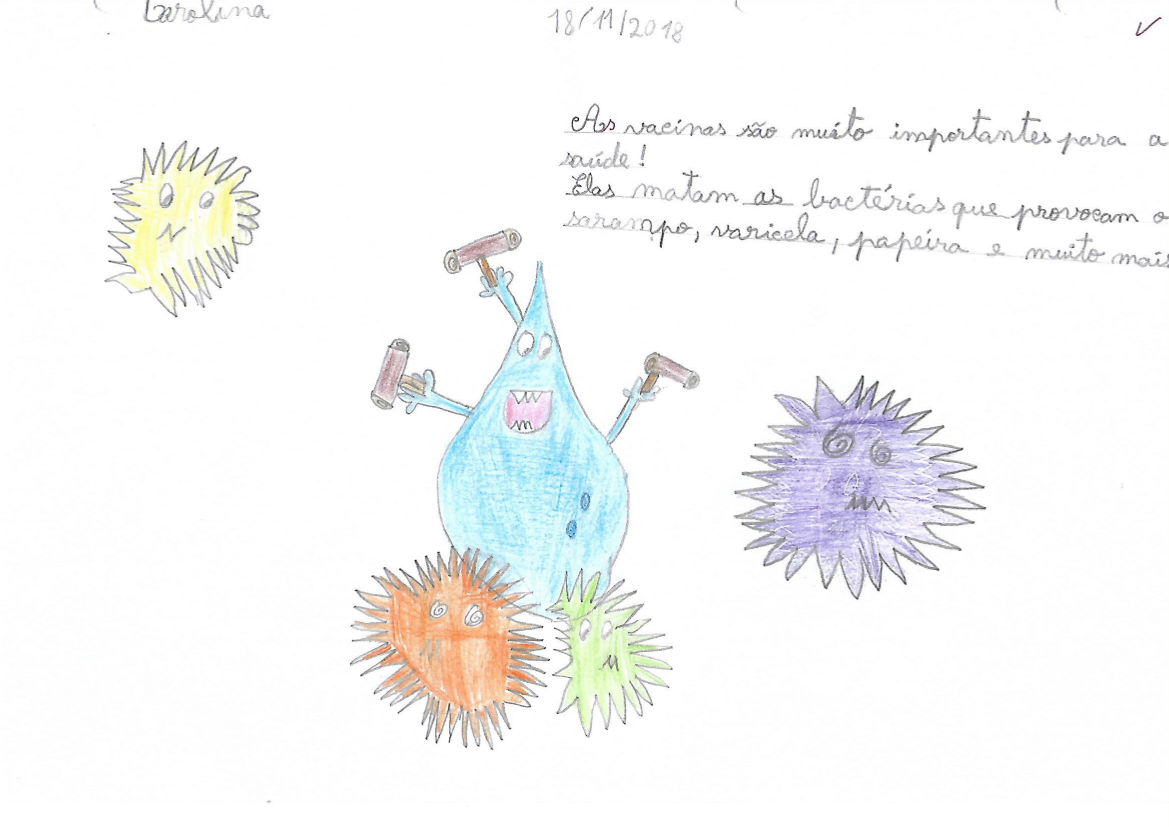 Carolina
18/11/2018
As vacinas são muito importantes para a
saúde!
Elas matam as bactérias que provocam o
sarampo, varicela, papeira e muito mais